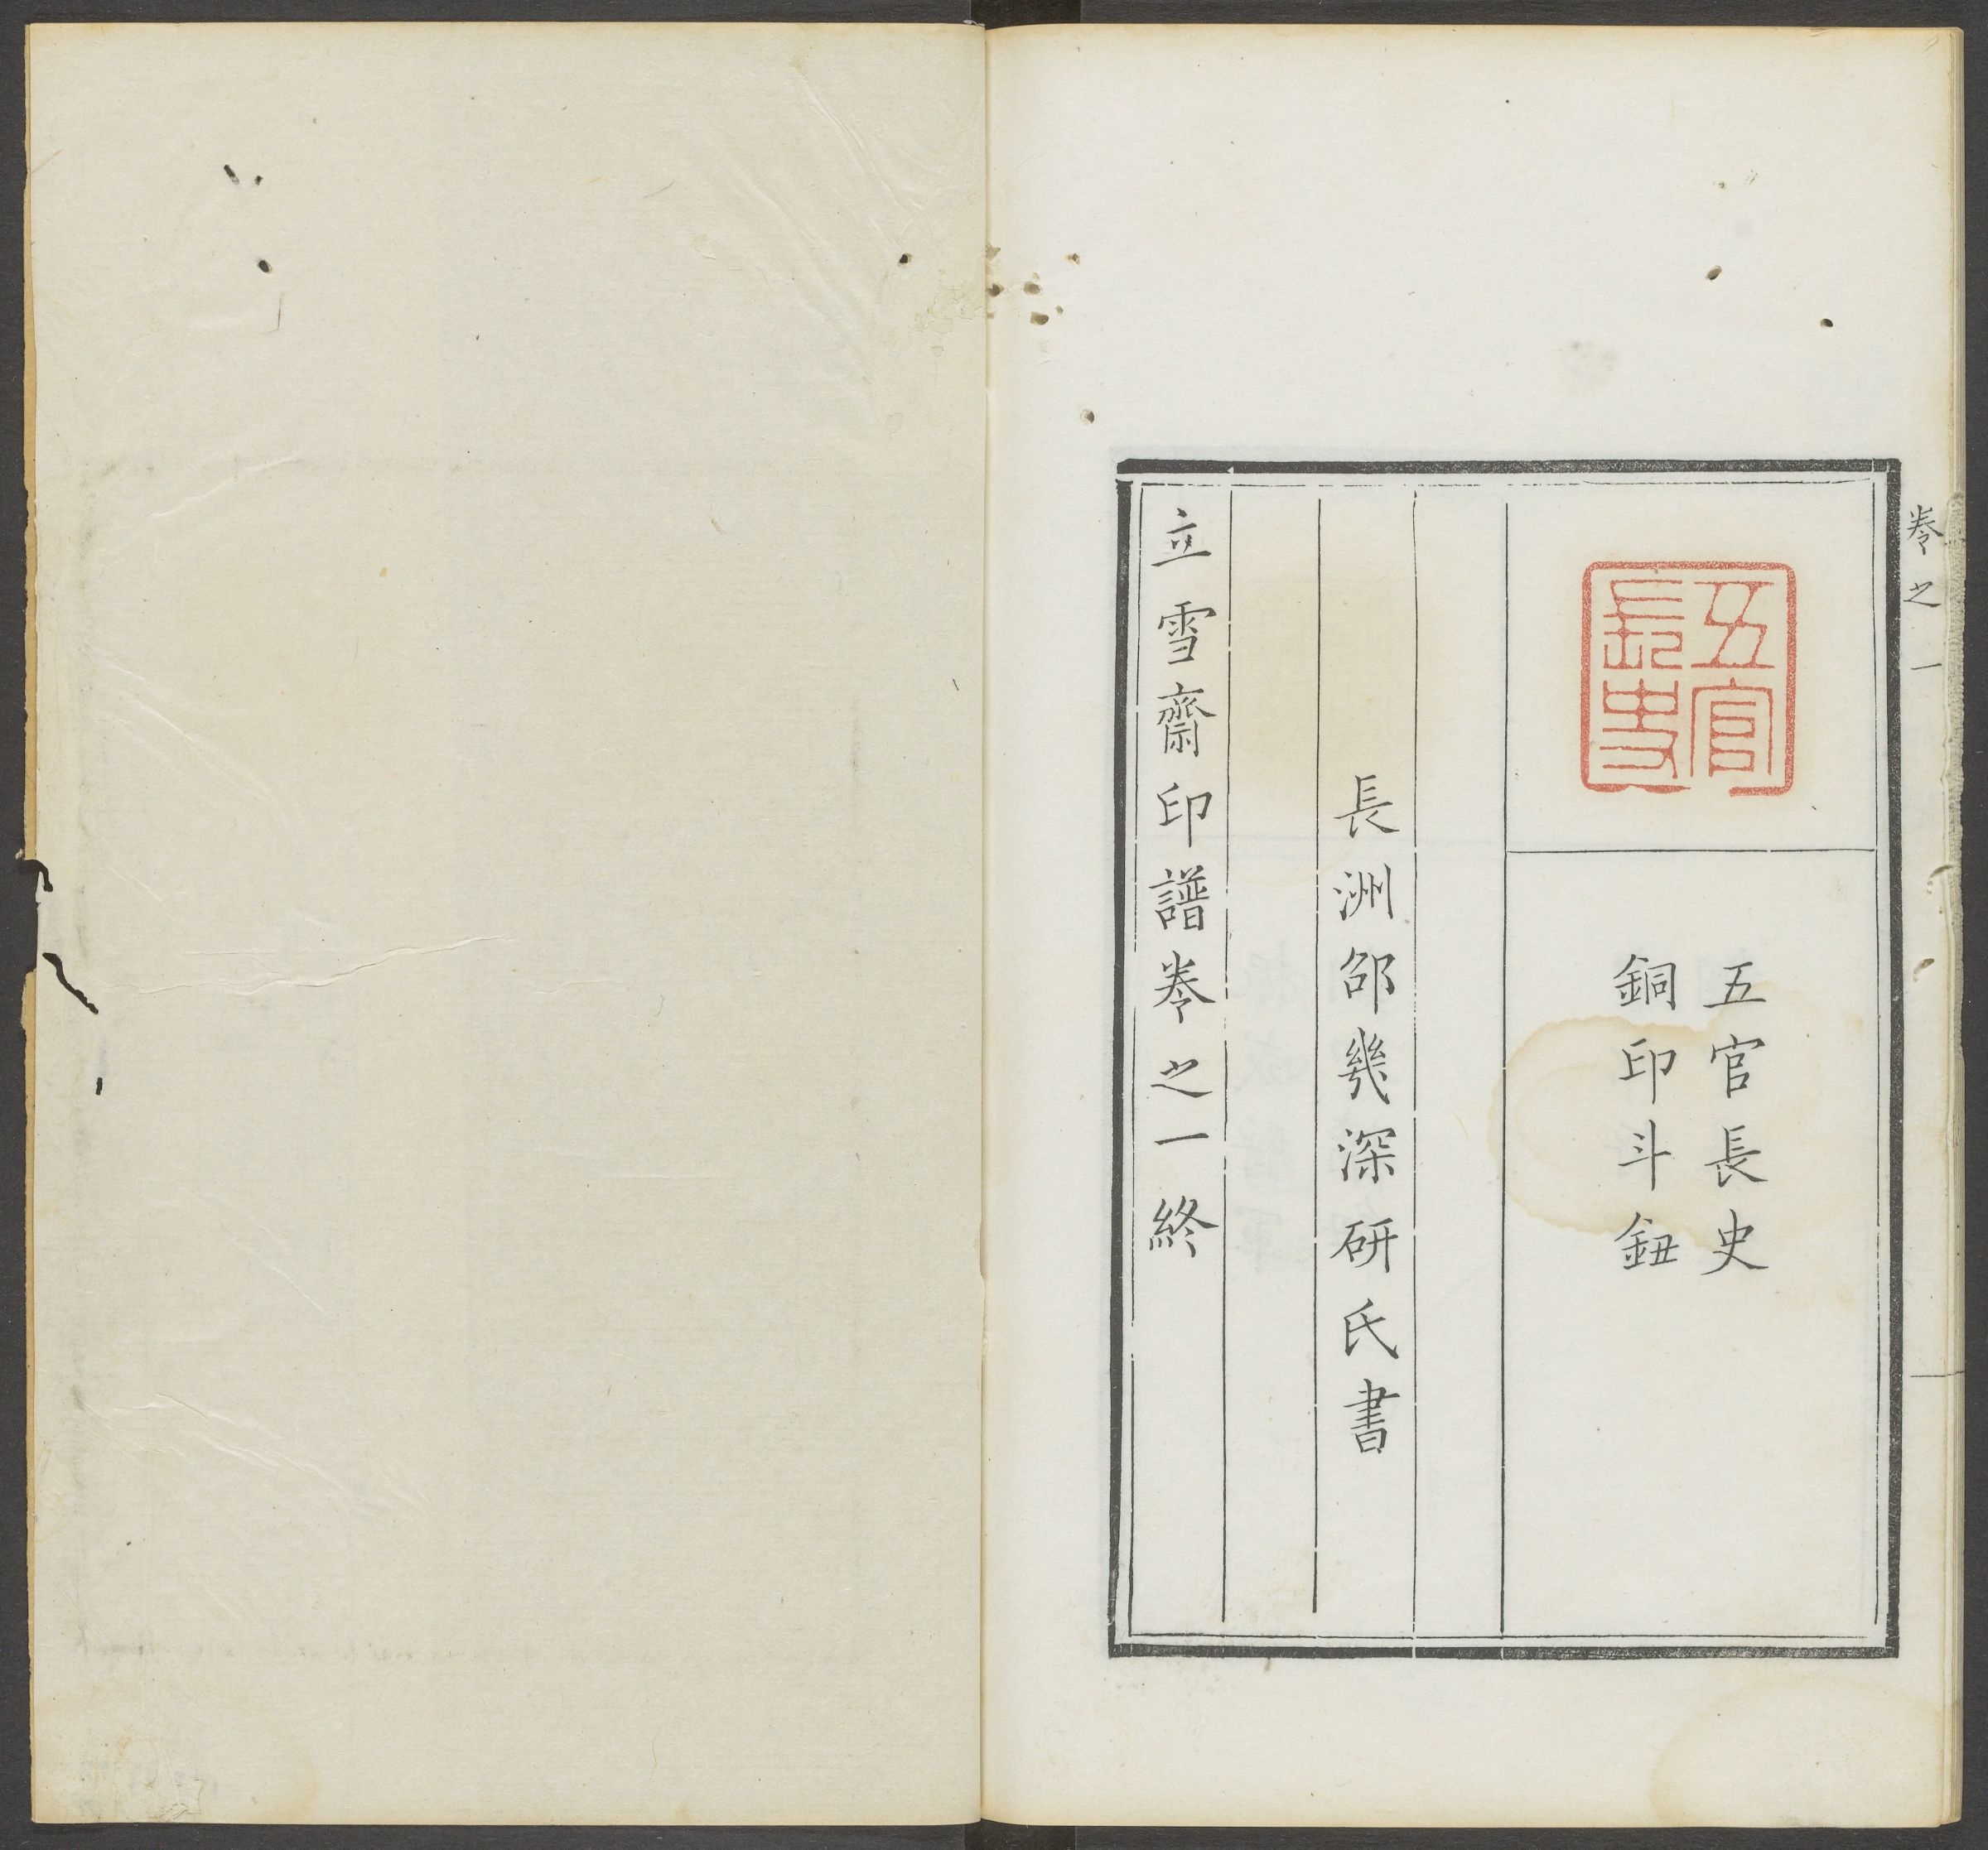 卷之一
五官長史
五官長史
銅印斗鈕
長洲邵幾深研氏書
立雪齋印譜卷之一終